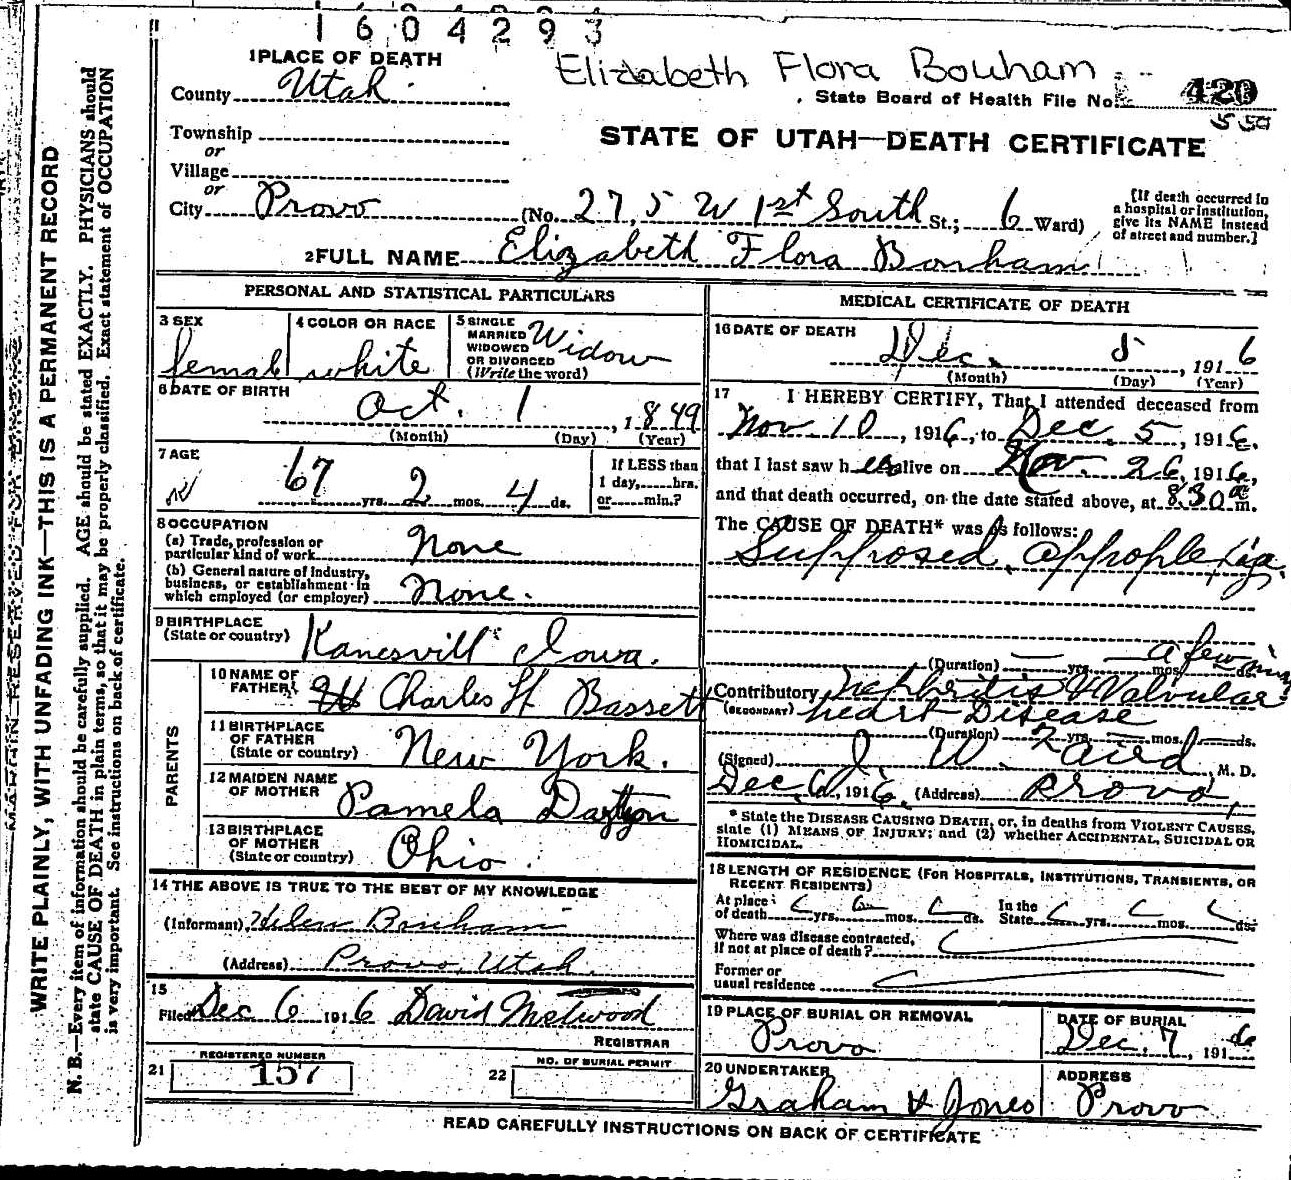 1604293
1 PLACE OF DEATH
Elizabeth Flora Bonham
County Utah
State Board of Health File No. 420
Township
or
STATE OF UTAH—DEATH CERTIFICATE
Village
or
City Provo (No. 275 W 1st South St.; 6 Ward)
[If death occurred in
a hospital or institution,
give its NAME instead
of street and number.]
2 FULL NAME Elizabeth Flora Bonham
PERSONAL AND STATISTICAL PARTICULARS
3 SEX female
4 COLOR OR RACE white
5 SINGLE
MARRIED
WIDOWED
OR DIVORCED
(Write the word) Widow
6 DATE OF BIRTH
Oct. 1, 1849
(Month) (Day) (Year)
7 AGE
67 yrs. 2 mos. 4 ds.
If LESS than
1 day, hrs.
or min.?
8 OCCUPATION
(a) Trade, profession or
particular kind of work None
(b) General nature of industry,
business, or establishment in
which employed (or employer) None.
9 BIRTHPLACE
(State or country) Kanesvill Iowa.
PARENTS
10 NAME OF
FATHER Charles H Bassett
11 BIRTHPLACE
OF FATHER
(State or country) New York.
12 MAIDEN NAME
OF MOTHER Pamela Dayton
13 BIRTHPLACE
OF MOTHER
(State or country) Ohio.
14 THE ABOVE IS TRUE TO THE BEST OF MY KNOWLEDGE
(Informant) Helen Bonham
(Address) Provo, Utah.
15
Filed Dec 6 1916 David Westwood
REGISTRAR
21 REGISTERED NUMBER
157
22 NO. OF BURIAL PERMIT
MEDICAL CERTIFICATE OF DEATH
16 DATE OF DEATH
Dec. 5, 1916
(Month) (Day) (Year)
17 I HEREBY CERTIFY, That I attended deceased from
Nov. 10, 1916, to Dec. 5, 1916.
that I last saw her alive on Nov. 26, 1916,
and that death occurred, on the date stated above, at 8:30 a m.
The CAUSE OF DEATH* was as follows:
Supposed appoplexia
(Duration) yrs. mos. ds. a few min
Contributory Nephritis & Valvular
(SECONDARY) heart Disease
(Duration) yrs. mos. ds.
(Signed) J. W. M. D.
Dec. 6, 1916. (Address) Provo,
* State the DISEASE CAUSING DEATH, or, in deaths from VIOLENT CAUSES,
state (1) MEANS OF INJURY; and (2) whether ACCIDENTAL, SUICIDAL OR
HOMICIDAL.
18 LENGTH OF RESIDENCE (FOR HOSPITALS, INSTITUTIONS, TRANSIENTS, OR
RECENT RESIDENTS)
At place
of death yrs. mos. ds.
In the
State yrs. mos. ds.
Where was disease contracted,
if not at place of death?
Former or
usual residence
19 PLACE OF BURIAL OR REMOVAL
Provo
DATE OF BURIAL
Dec. 7, 1916
20 UNDERTAKER
Graham & Jones
ADDRESS
Provo
READ CAREFULLY INSTRUCTIONS ON BACK OF CERTIFICATE
MARGIN RESERVED FOR BINDING
WRITE PLAINLY, WITH UNFADING INK—THIS IS A PERMANENT RECORD
N. B.—Every item of information should be carefully supplied. AGE should be stated EXACTLY. PHYSICIANS should
state CAUSE OF DEATH in plain terms, so that it may be properly classified. Exact statement of OCCUPATION
is very important. See instructions on back of certificate.